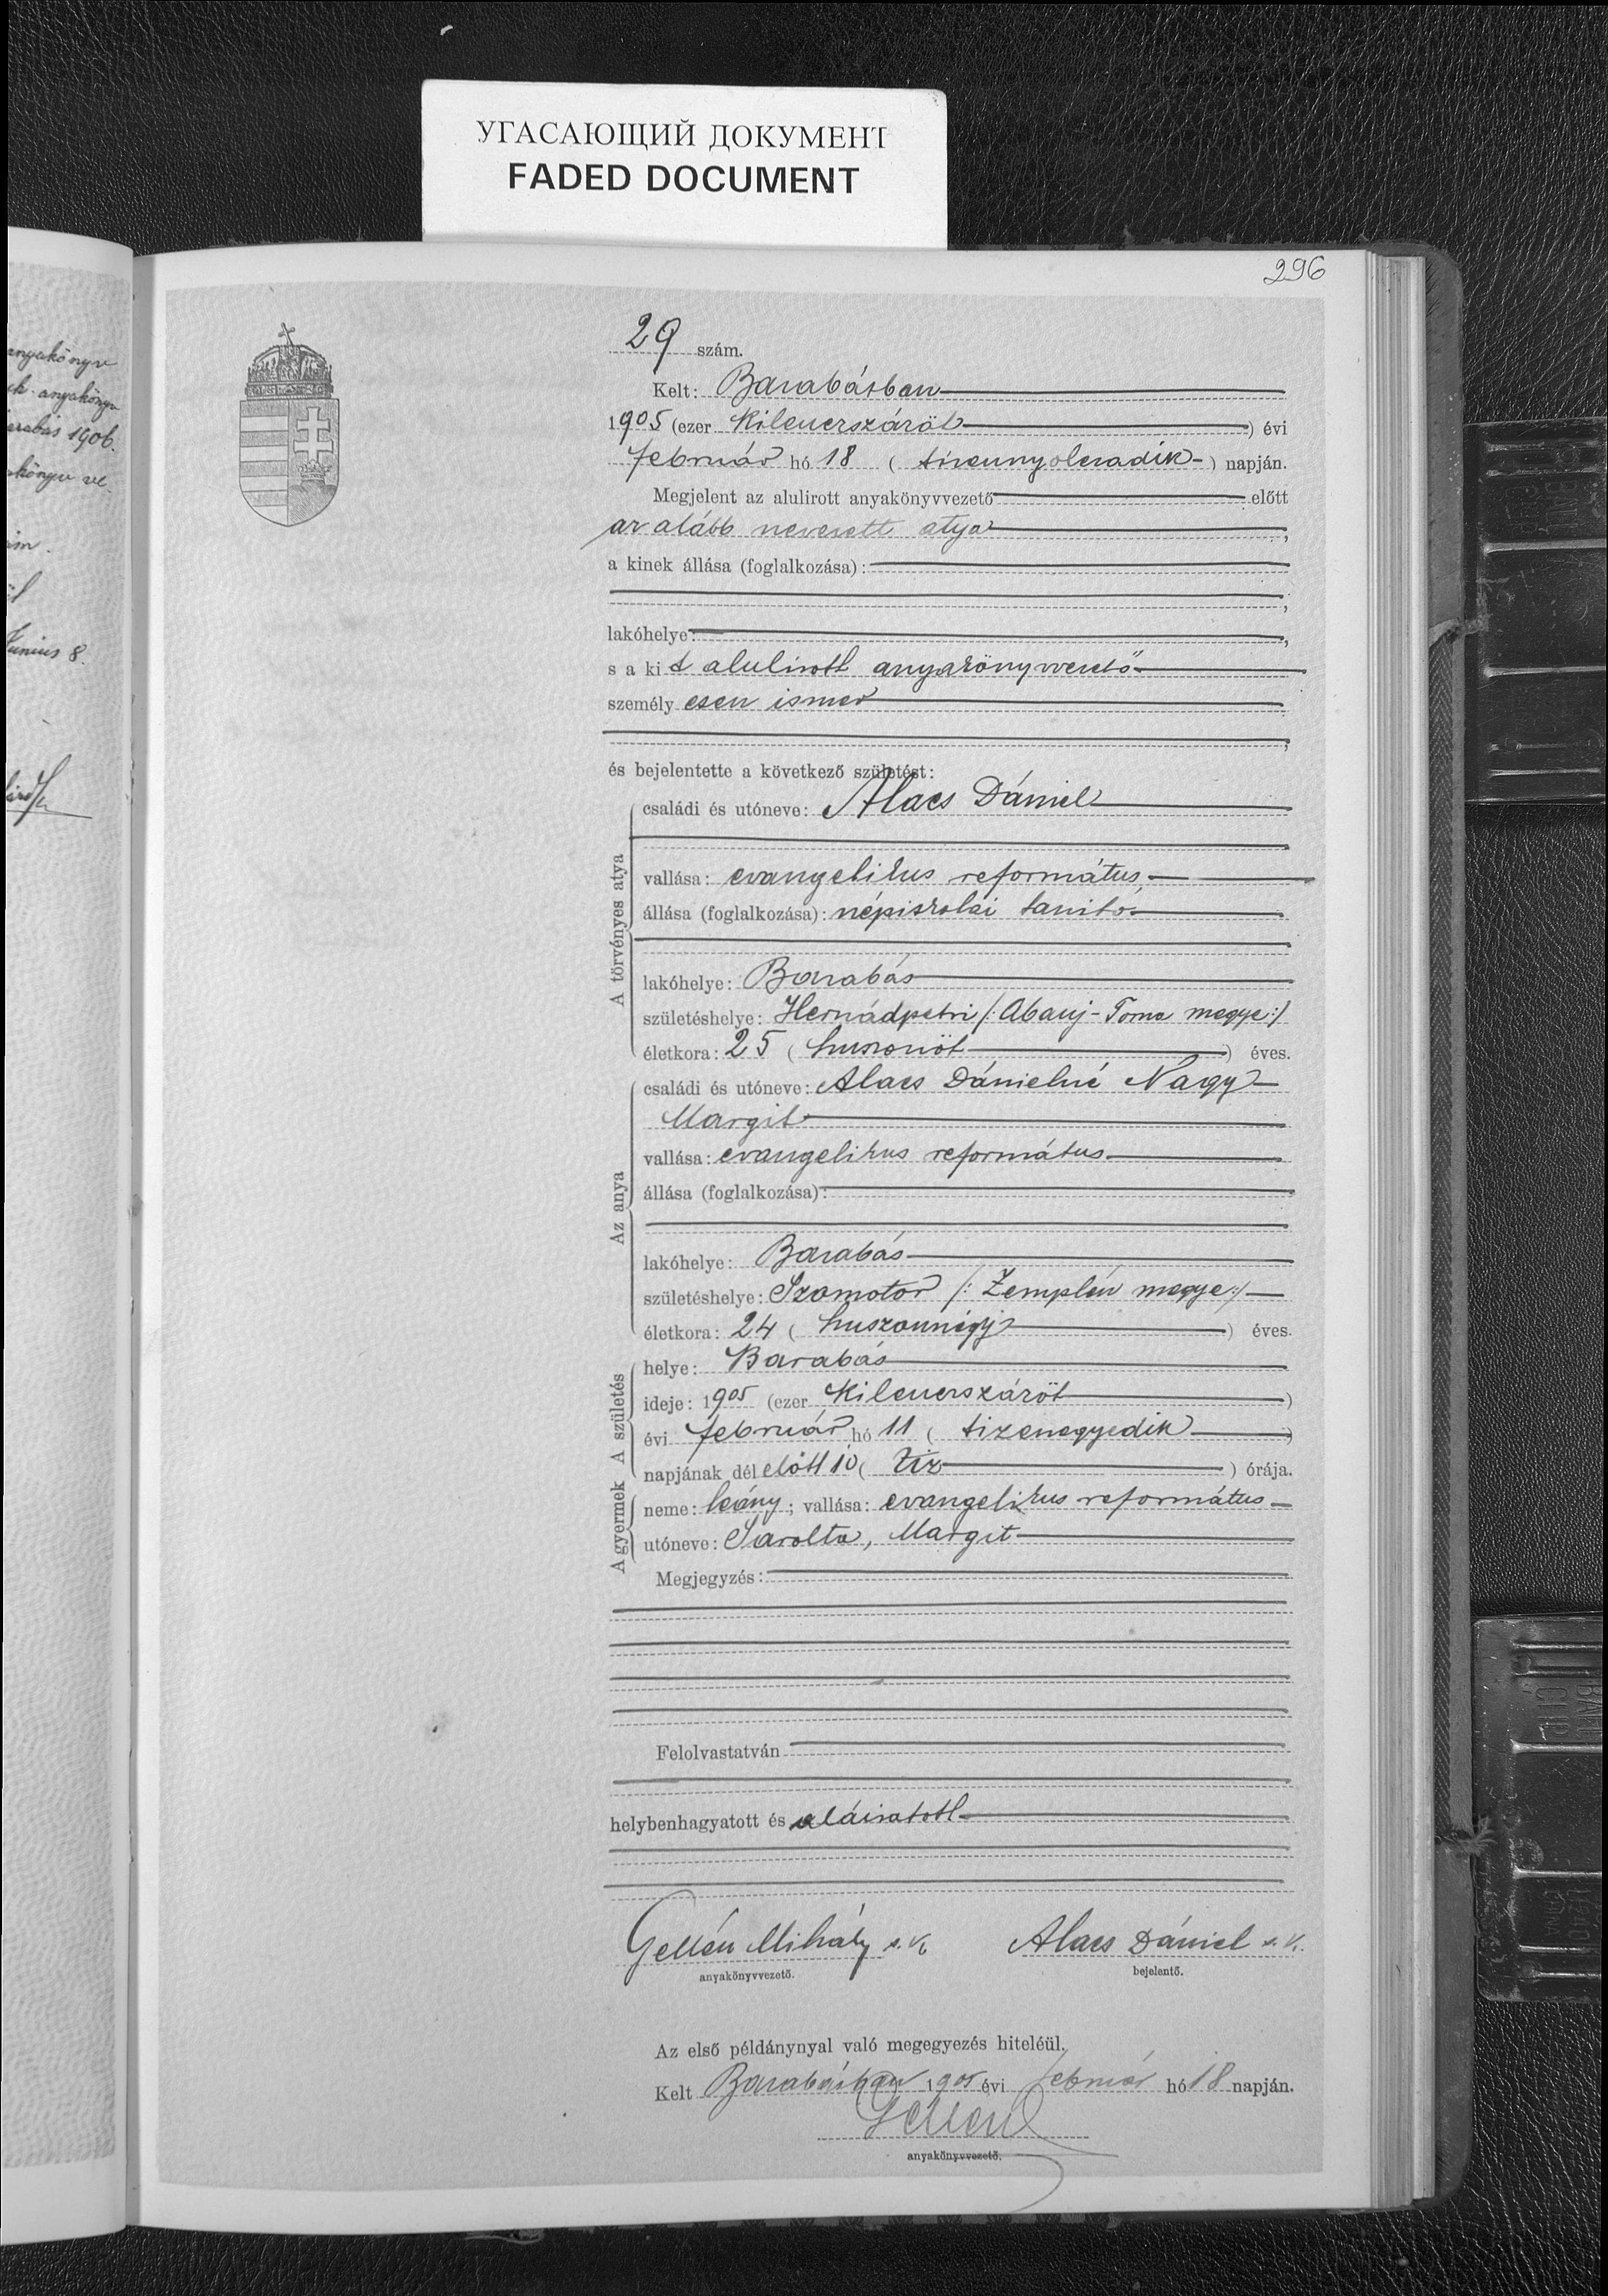 УГАСАЮЩИЙ ДОКУМЕНТ
FADED DOCUMENT
296
anyakönyv
anyakönyv
1906.
könyv ve
Junius 8.
29 szám.
Kelt: Barabásban
1905 (ezer kilencszázöt) évi
február hó 18 (tizennyolcadik) napján.
Megjelent az alulirott anyakönyvvezető előtt
az alább nevezett atya,
a kinek állása (foglalkozása):
;
lakóhelye:,
s a kit alulirott anyakönyvvezető
személyesen ismer
,
és bejelentette a következő születést:
A törvényes atya
családi és utóneve: Alacs Dániel
vallása: evangelikus református
állása (foglalkozása): népiskolai tanitó
lakóhelye: Barabás
születéshelye: Hernádpetri /: Abauj-Torna megye:/
életkora: 25 (huszonöt) éves.
Az anya
családi és utóneve: Alacs Dánielné Nagy
Margit
vallása: evangelikus református
állása (foglalkozása):
lakóhelye: Barabás
születéshelye: Szomotor /: Zemplén megye:/
életkora: 24 (huszonnégy) éves.
A születés
helye: Barabás
ideje: 1905 (ezer kilencszázöt)
évi február hó 11 (tizenegyedik)
napjának délelőtt 10 (tiz) órája.
A gyermek
neme: leány; vallása: evangelikus református
utóneve: Sarolta, Margit
Megjegyzés:
Felolvastatván
helybenhagyatott és aláiratott
Gellén Mihály s. k. Alacs Dániel s. k.
anyakönyvvezető. bejelentő.
Az első példánynyal való megegyezés hiteléül.
Kelt Barabásban 1905 évi február hó 18 napján.
Gellén
anyakönyvvezető.